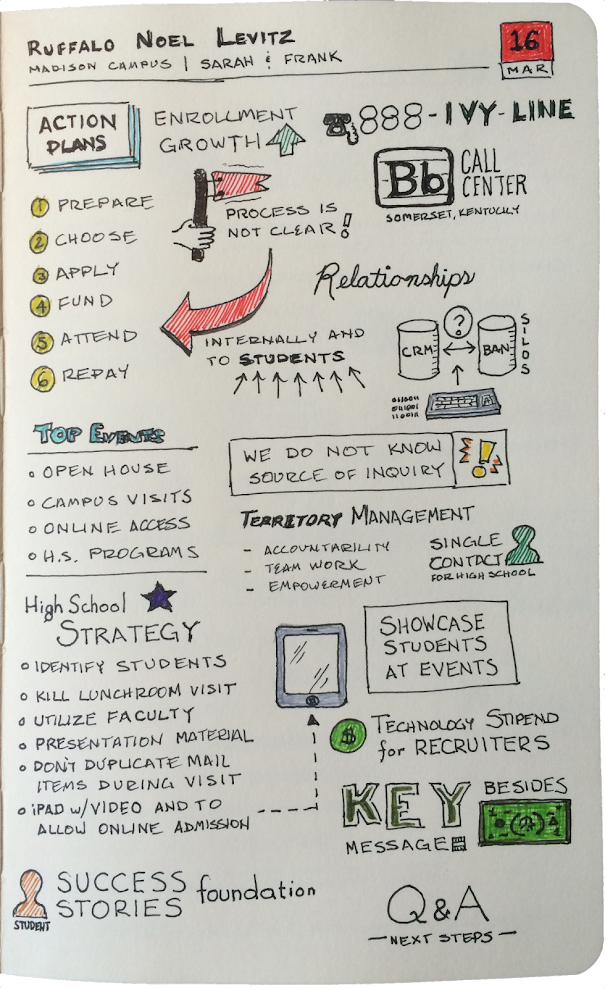 RUFFALO NOEL LEVITZ
MADISON CAMPUS | SARAH & FRANK
16
MAR
ACTION
PLANS
ENROLLMENT
GROWTH
888-IVY-LINE
Bb
CALL
CENTER
SOMERSET, KENTUCKY
1 PREPARE
2 CHOOSE
3 APPLY
4 FUND
5 ATTEND
6 REPAY
PROCESS IS
NOT CLEAR!
INTERNALLY AND
TO STUDENTS
Relationships
CRM
?
BAN
SILOS
WE DO NOT KNOW
SOURCE OF INQUIRY
!
TOP EVENTS
• OPEN HOUSE
• CAMPUS VISITS
• ONLINE ACCESS
• H.S. PROGRAMS
TERRITORY MANAGEMENT
- ACCOUNTABILITY
- TEAM WORK
- EMPOWERMENT
SINGLE
CONTACT
FOR HIGH SCHOOL
High School
STRATEGY
• IDENTIFY STUDENTS
• KILL LUNCHROOM VISIT
• UTILIZE FACULTY
• PRESENTATION MATERIAL
• DON'T DUPLICATE MAIL
ITEMS DURING VISIT
• iPAD w/VIDEO AND TO
ALLOW ONLINE ADMISSION
SHOWCASE
STUDENTS
AT EVENTS
$
TECHNOLOGY STIPEND
for RECRUITERS
KEY
MESSAGE
BESIDES
STUDENT
SUCCESS
STORIES
foundation
Q&A
—NEXT STEPS—